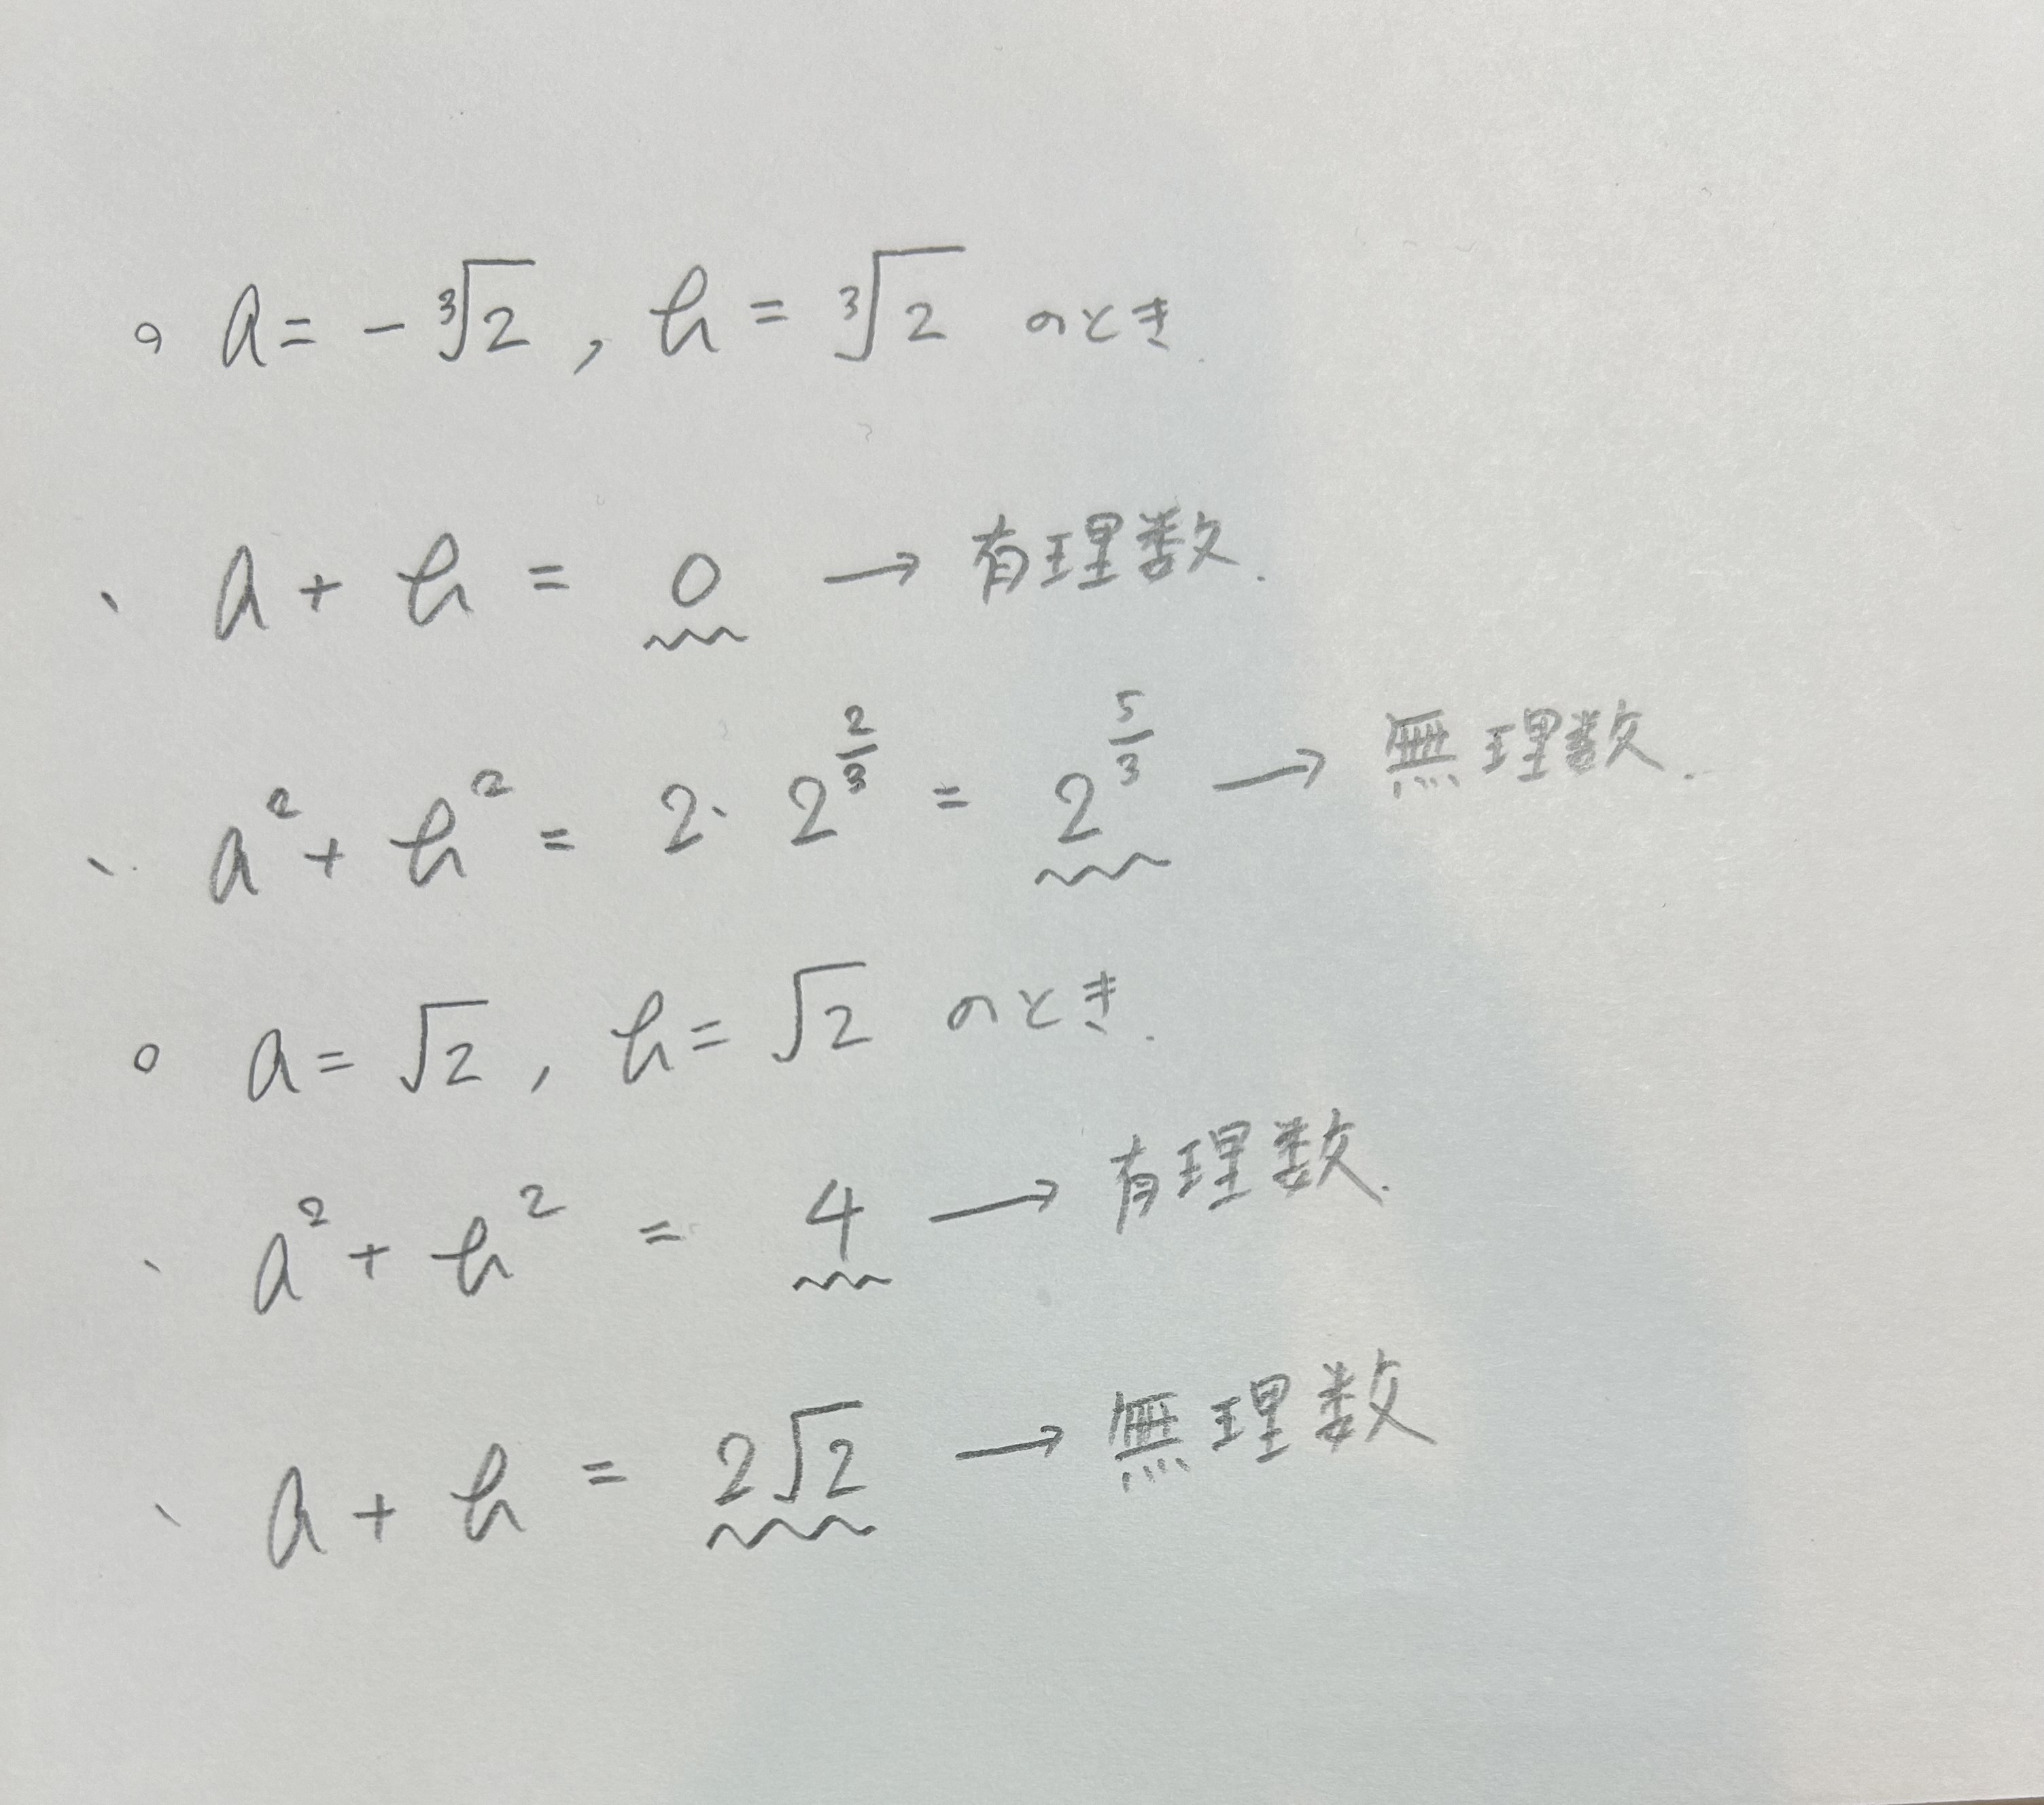 。a = -∛2 , b = ∛2 のとき.
、a + b = 0 → 有理数.
、a² + b² = 2・2^(2/3) = 2^(5/3) → 無理数.
。a = √2 , b = √2 のとき.
、a² + b² = 4 → 有理数.
、a + b = 2√2 → 無理数